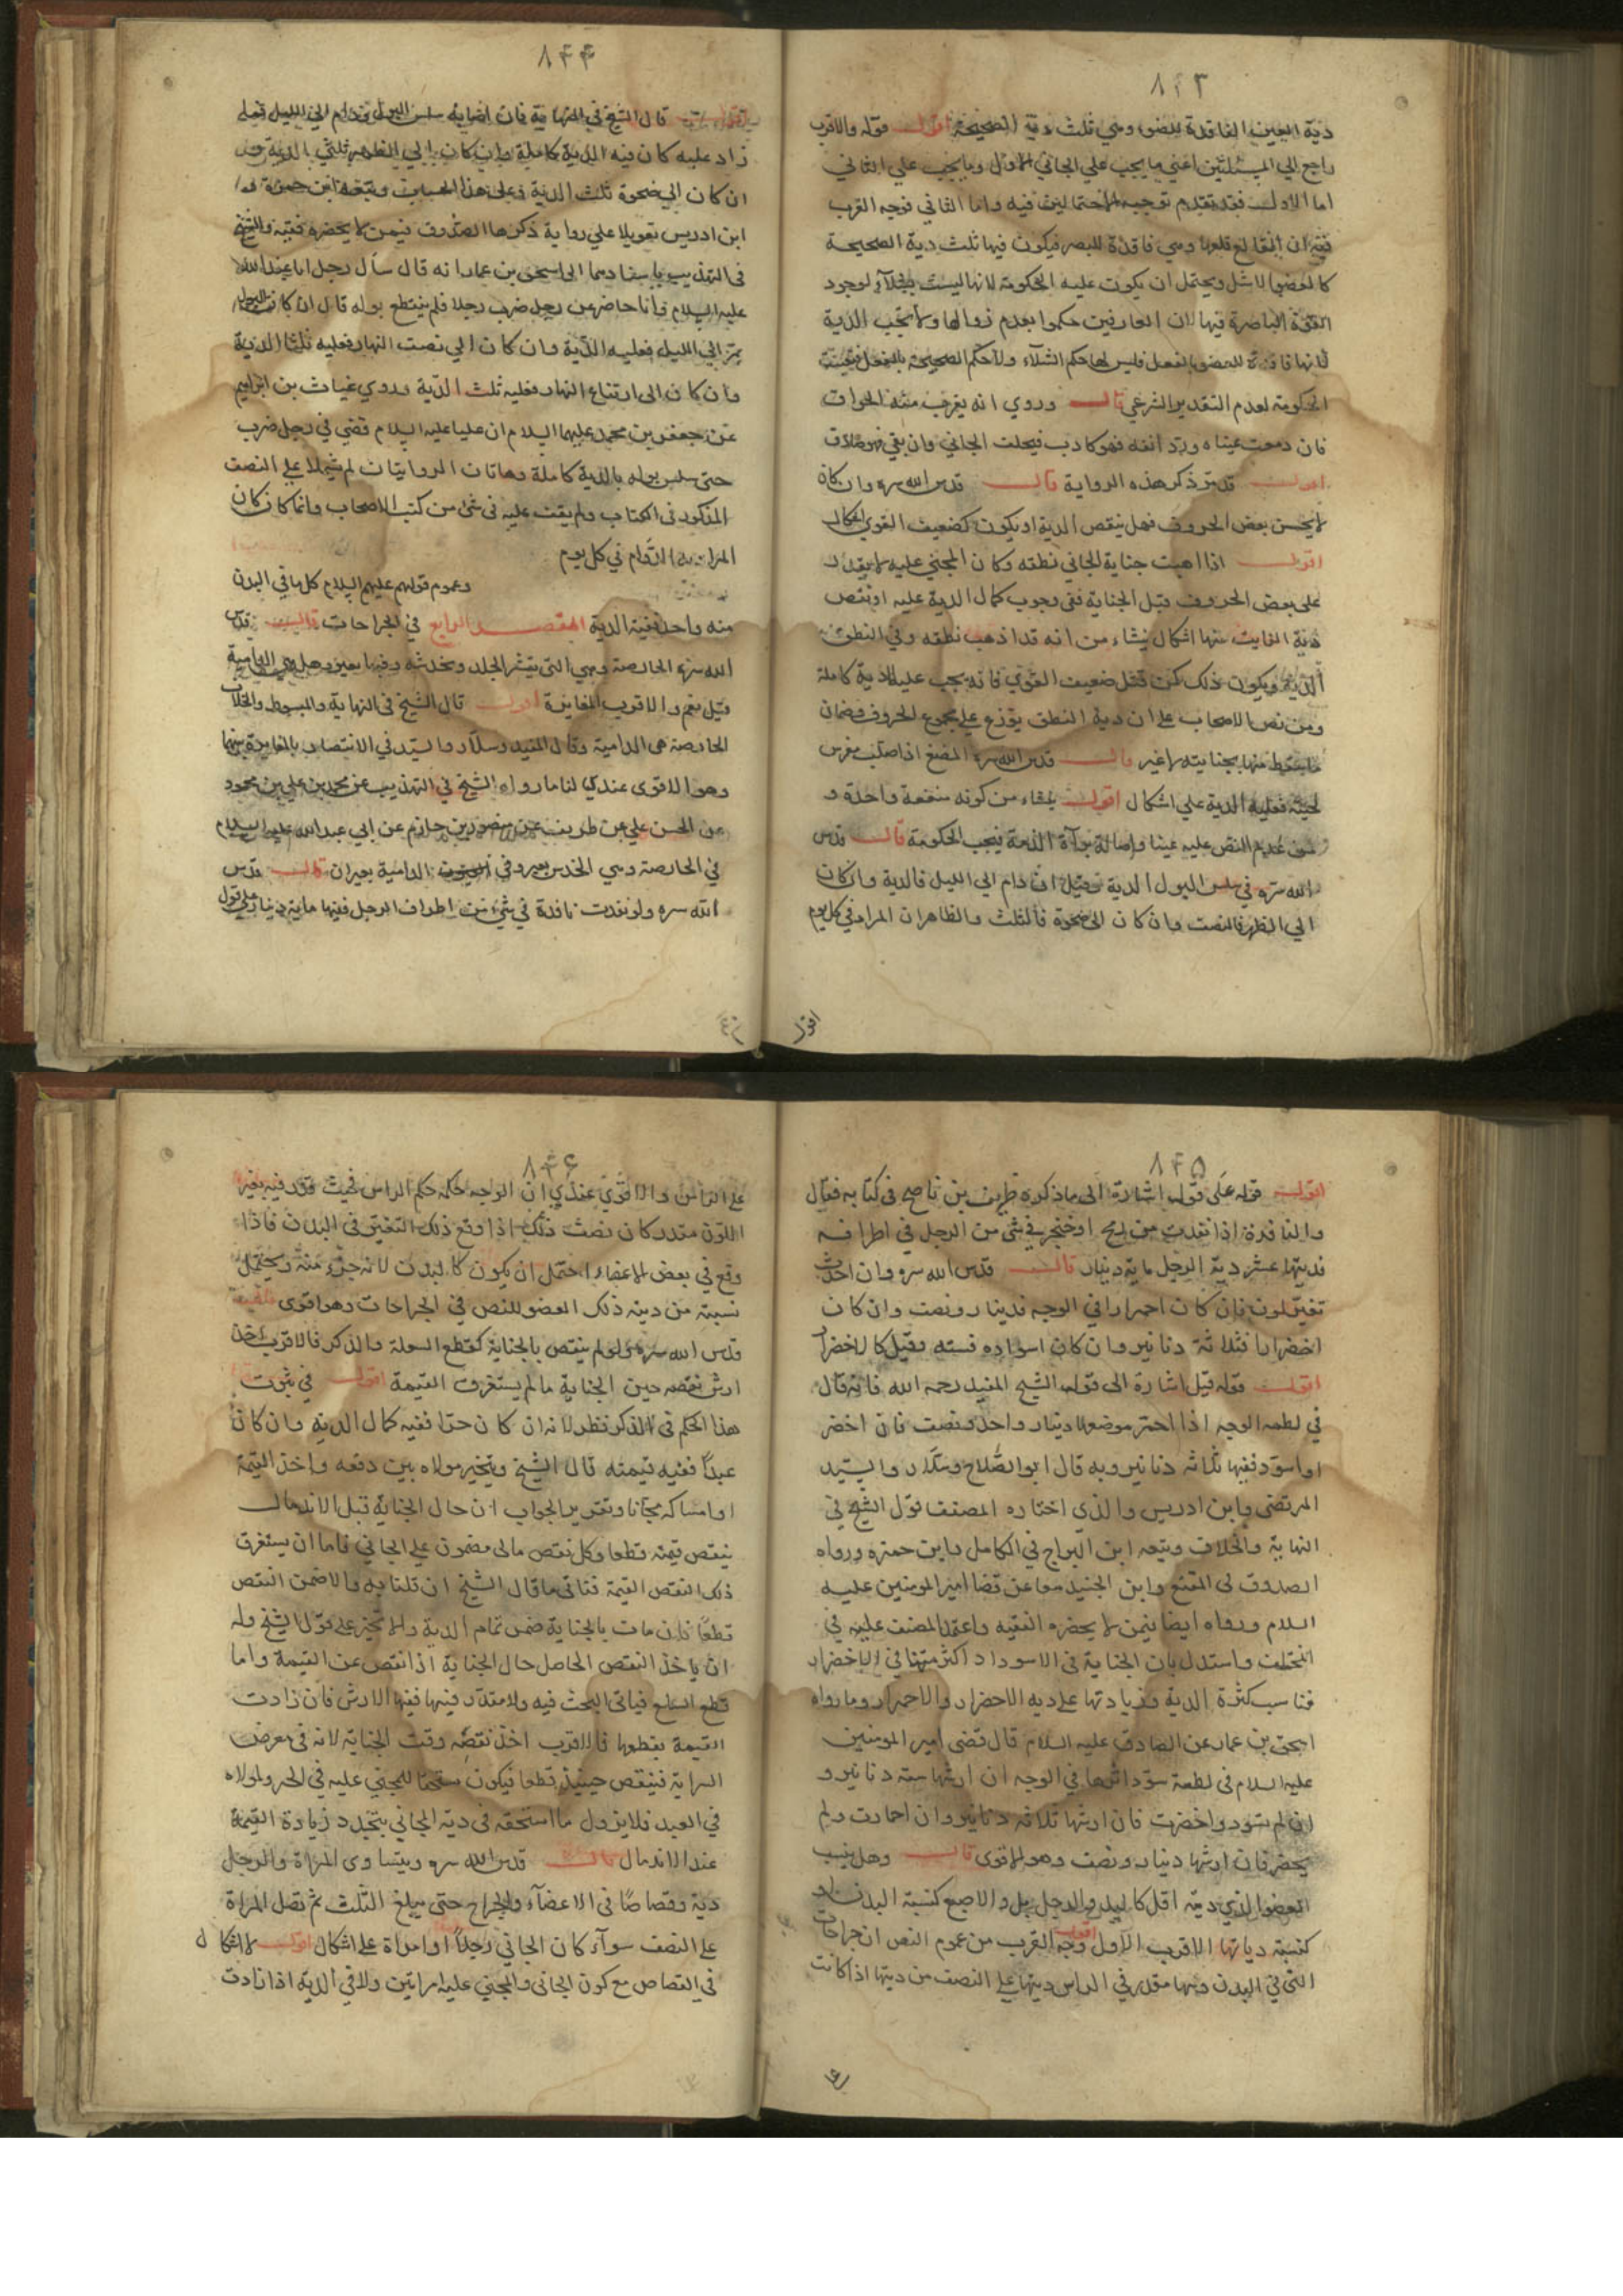 ٨٤٣
دية العين الفاقدة للضوء وهي ثلث دية الصحيحة اقول قوله والاقرب
راجع الي المسئلتين اعني ما يجب علي الجاني الاول وما يجب علي الثاني
اما الاول فقد تقدم توجيه الاحتمالين فيه واما الثاني فوجه القرب
فيه ان القالع قلعها وهي فاقدة للبصر فيكون فيها ثلث دية الصحيحة
كالعضو الاشل ويحتمل ان يكون عليه الحكومة لانها ليست لوجود
القوة الباصرة فيها لان العارفين حكموا بعدم زوالها ولا تجب الدية
لانها فاقدة للبصر بالفعل فليس لها حكم الشلاء ولا حكم الصحيحة بالفعل
الحكومة لعدم التقدير الشرعي قال وروي انه يقرب منه الحراق
فان دمعت عيناه ورد انفه فهو كاذب فيحلف الجاني وان بقي فهو صادق
اقول قد مر ذكر هذه الرواية قال قدس الله سره وان كان
لا يحسن بعض الحروف فهل ينقص الدية او يكون كضعيف القوي اشكال
اقول اذا اذهبت جناية الجاني نطقه وكان المجني عليه لا يقدر
علي بعض الحروف قبل الجناية ففي وجوب كمال الدية عليه او نقص
دية الفايت منها اشكال ينشاء من انه قد اذهب نطقه وفي النطق
الدية ويكون ذلك كمن قتل ضعيف القوي فانه يجب عليه الدية كاملة
ومن نص الاصحاب علي ان دية النطق يوزع علي مجموع الحروف فضمان
ما سقط منها بجنايته لا غير قال قدس الله سره المضغ اذا صلب مغرس
لحيته فعليه الدية علي اشكال اقول ينشاء من كونه منفعة واحدة و
من عدم النص عليه عينا واصالة براءة الذمة فيجب الحكومة قال قدس
الله سره في سلس البول الدية وقيل ان دام الي الليل فالدية وان كان
الي الظهر فالنصف وان كان الي ضحوة فالثلث والظاهر ان المراد في كل يوم
اقول
٨٤٤
قال الشيخ في النهاية فان اصابه سلس البول ودام الي الليل فما
زاد عليه كان فيه الدية كاملة وان كان الي الظهر ثلثي الدية و
ان كان الي ضحوة ثلث الدية وعلي هذا الحساب وتبعه ابن حمزة و
ابن ادريس تعويلا علي رواية ذكرها الصدوق فيمن لا يحضره فقيه والشيخ
في التهذيب باسنادهما الي اسحق بن عمار انه قال سأل رجل ابا عبد الله
عليه السلام وانا حاضر عن رجل ضرب رجلا فلم ينقطع بوله قال ان كان البول
يمر الي الليل فعليه الدية وان كان الي نصف النهار فعليه ثلثا الدية
وان كان الي ارتفاع النهار فعليه ثلث الدية وروي غياث بن ابراهيم
عن جعفر بن محمد عليهما السلام ان عليا عليه السلام قضي في رجل ضرب
حتى سلس بوله بالدية كاملة وهاتان الروايتان لم يشتملا علي النصف
المذكور في الكتاب ولم يقف عليه في شئ من كتب الاصحاب وانما كان كان
المراد الدوام في كل يوم
وعموم قولهم عليهم السلام كل ما في البدن
منه واحد ففيه الدية المقصد الرابع في الجراحات قال قدس
الله سره الحارصة وهي التي يقشر الجلد وتخدشه وفيها بعير وهل هي الدامية
قيل نعم والاقرب المغايرة اقول قال الشيخ في النهاية والمبسوط والخلاف
الحارصة هي الدامية وقال المفيد وسلار والسيد في الانتصار بالمغايرة بينهما
وهو الاقوى عندي لنا ما رواه الشيخ في التهذيب عن محمد بن علي بن محبوب
عن الحسن علي بن ظريف عن منصور بن حازم عن ابي عبد الله عليه السلام
في الحارصة وهي الخدس بعير وفي الدامية بعيران قال قدس
الله سره ولو نفذت نافذة في شئ من اطراف الرجل ففيها ماية دينار علي قول
٨٤٥
اقول قوله علي قول اشارة الي ما ذكره ظريف بن ناصح في كتابه فقال
والنافذة اذا نفذت من رمح او خنجر في شئ من الرجل في اطرافه
فديتها عشر دية الرجل ماية دينار قال قدس الله سره وان احدث
تغير لون فان كان احمرارا في الوجه فدينار ونصف وان كان
اخضرارا فثلاثة دنانير وان كان اسواده فستة وقيل كالاخضرار
اقول قوله قيل اشارة الي قول الشيخ المفيد رحمه الله فانه قال
في لطمه الوجه اذا احمر موضعها دينار واحد ونصف فان اخضر
او اسود ففيها ثلاثة دنانير وبه قال ابو الصلاح وسلار والسيد
المرتضي وابن ادريس والذي اختاره المصنف قول الشيخ في
النهاية والخلاف وتبعه ابن البراج في الكامل وابن حمزه ورواه
الصدوق في المقنع وابن الجنيد معا عن قضا امير المومنين عليه
السلام ورواه ايضا فيمن لا يحضره الفقيه واعتمد المصنف عليه في
المختلف واستدل بان الجناية في الاسوداد اكثر منها في الاخضرار
فناسب كثرة الدية وزيادتها علي دية الاخضرار والاحمرار وما رواه
اسحق بن عمار عن الصادق عليه السلام قال قضي امير المومنين
عليه السلام في لطمة سود اثرها في الوجه ان ارشها ستة دنانير و
ان لم تسود واخضرت فان ارشها ثلاثة دنانير وان احمارت ولم
يخضر فان ارشها دينار ونصف وهو الاقوى قال وهل ينسب
العضو الذي ديته اقل كاليد والرجل بل والاصبع كنسبة البدن او
كنسبة دياتها الاقرب الاول اقول وجه القرب من عموم النص ان جراحات
التي في البدن ومنها مقدر في الراس ديتها علي النصف من ديتها اذا كانت
٨٤٦
علي الراس والاقوي عندي ان الوجه حكمه حكم الراس فحيث قدر فيه بغير
اللون مقدر كان نصف ذلك اذا وقع ذلك التغير في البدن فاذا
وقع في بعض الاعضاء احتمل ان يكون كالبدن لانه جزء منه ويحتمل
نسبته من دية ذلك العضو للنص في الجراحات وهو اقوى
قدس الله سره ولو لم ينقص بالجناية كقطع السلعة والذكر فالاقرب اخذ
ارش نقصه حين الجناية ما لم يستغرق القيمة اقول في ثبوت
هذا الحكم في الذكر نظر لانه ان كان حرا ففيه كمال الدية وان كان
عبدا ففيه قيمته قال الشيخ ويتخير مولاه بين دفعه واخذ القيمة
او امساكه مجانا وتقرير الجواب ان حال الجناية قبل الاندمال
ينقص قيمته قطعا وكل نقص مالي مضمون علي الجاني فاما ان يستغرق
ذلك النقص القيمة فتاتي ما قال الشيخ ان قلنا به والا ضمن النقص
قطعا فان مات بالجناية ضمن تمام الدية والا تخير علي قول الشيخ وله
ان ياخذ النقص الحاصل حال الجناية اذا نقص عن القيمة واما
قطع السلع فياتي البحث فيه ولا مقدر فيها ففيها الارش فان زادت
القيمة بقطعها فالاقرب اخذ نقصه وقت الجناية لانه في معرض
السراية فينقص حينئذ قطعا فيكون مستحقا للمجني عليه في الحر ولمولاه
في العبد فلا يزول ما استحقه في دية الجاني بتجدد زيادة القيمة
عند الاندمال قال قدس الله سره ويتساوى المراة والرجل
دية وقصاصا في الاعضاء والجراح حتى يبلغ الثلث ثم تصل المراة
علي النصف سواء كان الجاني رجلا او امراة علي اشكال اقول لا اشكال
في القصاص مع كون الجاني والمجني عليه امراتين ولا في الدية اذا زادت